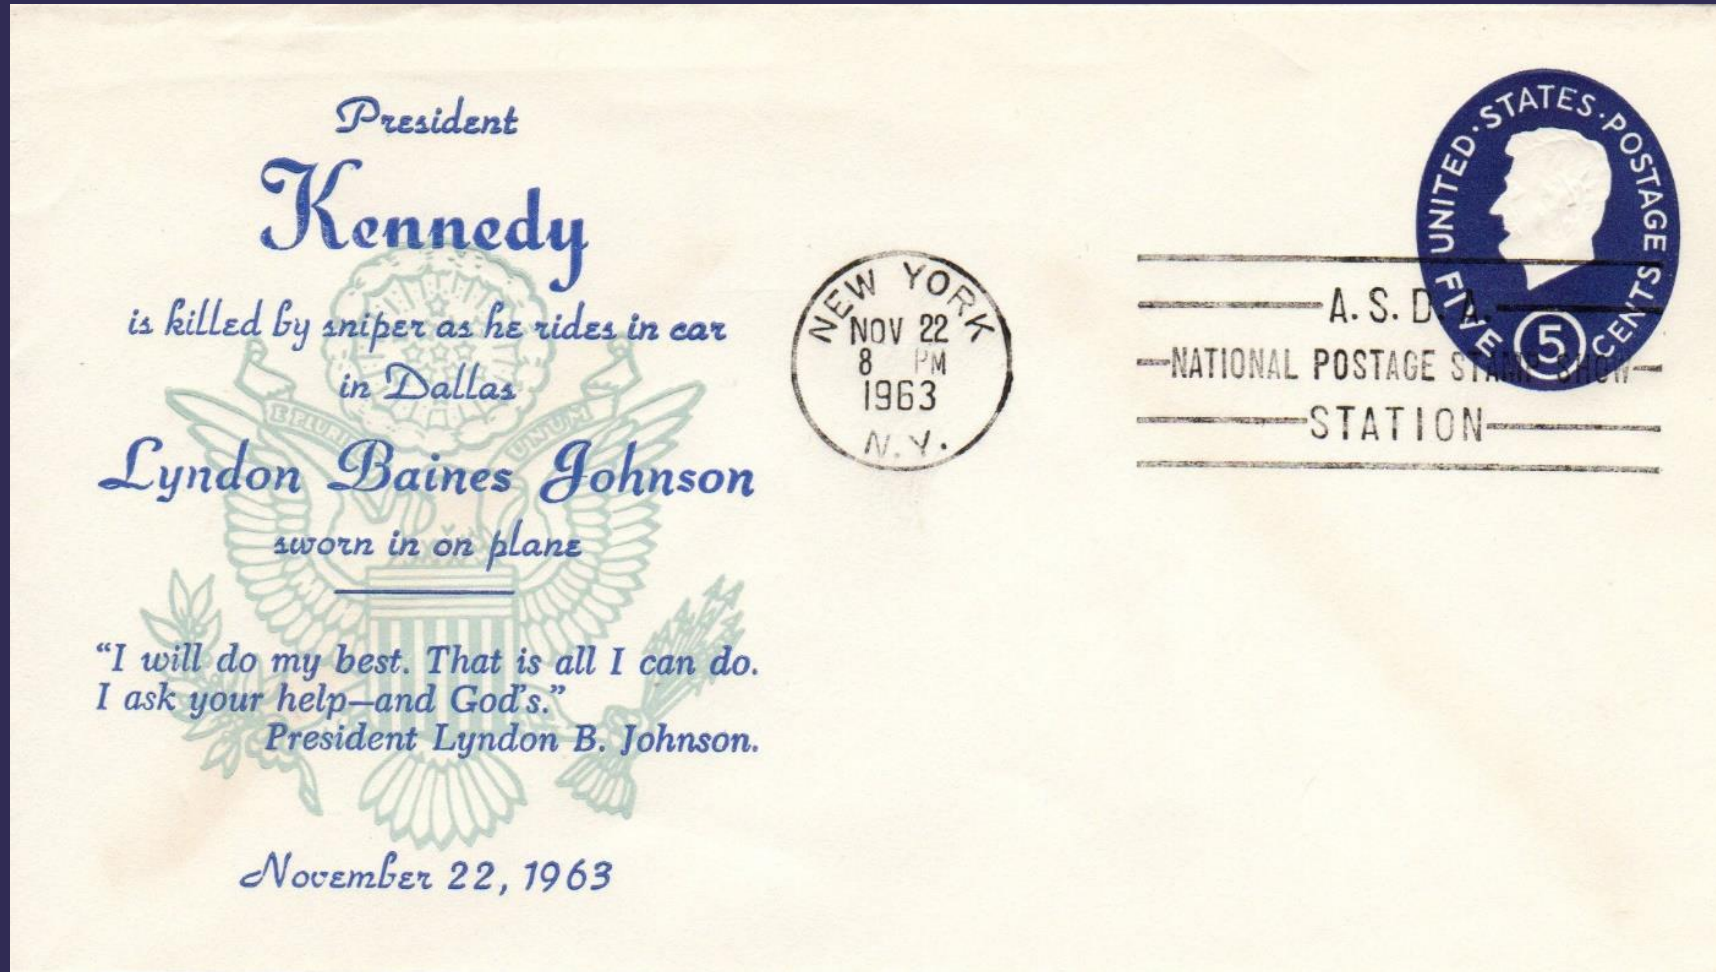 President
Kennedy
is killed by sniper as he rides in car
in Dallas
Lyndon Baines Johnson
sworn in on plane
“I will do my best. That is all I can do.
I ask your help—and God's.”
President Lyndon B. Johnson.
November 22, 1963
E PLURI
UNUM
NEW YORK
NOV 22
8 PM
1963
N.Y.
UNITED·STATES·POSTAGE
FIVE 5 CENTS
A. S. D. A.
NATIONAL POSTAGE STAMP SHOW
STATION